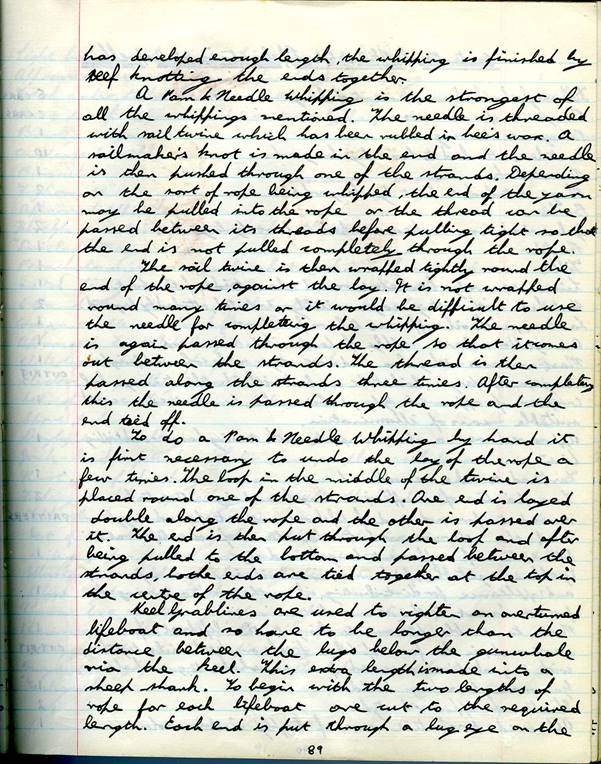 has developed enough length, the whipping is finished by
reef knotting the ends together.
A Pam & Needle Whipping is the strongest of
all the whippings mentioned. The needle is threaded
with sail twine which has been rubbed in bee's wax. A
sailmaker's knot is made in the end and the needle
is then pushed through one of the strands. Depending
on the sort of rope being whipped, the end of the yarn
may be pulled into the rope or the thread can be
passed between its threads before pulling tight so that
the end is not pulled completely through the rope.
The sail twine is then wrapped tightly round the
end of the rope, against the lay. It is not wrapped
round many times or it would be difficult to use
the needle for completing the whipping. The needle
is again passed through the rope so that it comes
out between the strands. The thread is then
passed along the strands three times. After completing
this the needle is passed through the rope and the
end tied off.
To do a Pam & Needle Whipping by hand it
is first necessary to undo the lay of the rope a
few times. The loop in the middle of the twine is
placed round one of the strands. One end is layed
double along the rope and the other is passed over
it. The end is then put through the loop and after
being pulled to the bottom and passed between the
strands, bothe ends are tied together at the top in
the centre of the rope.
Keel Grablines are used to righten an overturned
lifeboat and so have to be longer than the
distance between the lugs below the gunwhale
via the keel. This extra length is made into a
sheep shank. To begin with the two lengths of
rope for each lifeboat are cut to the required
length. Each end is put through a lug eye on the
89